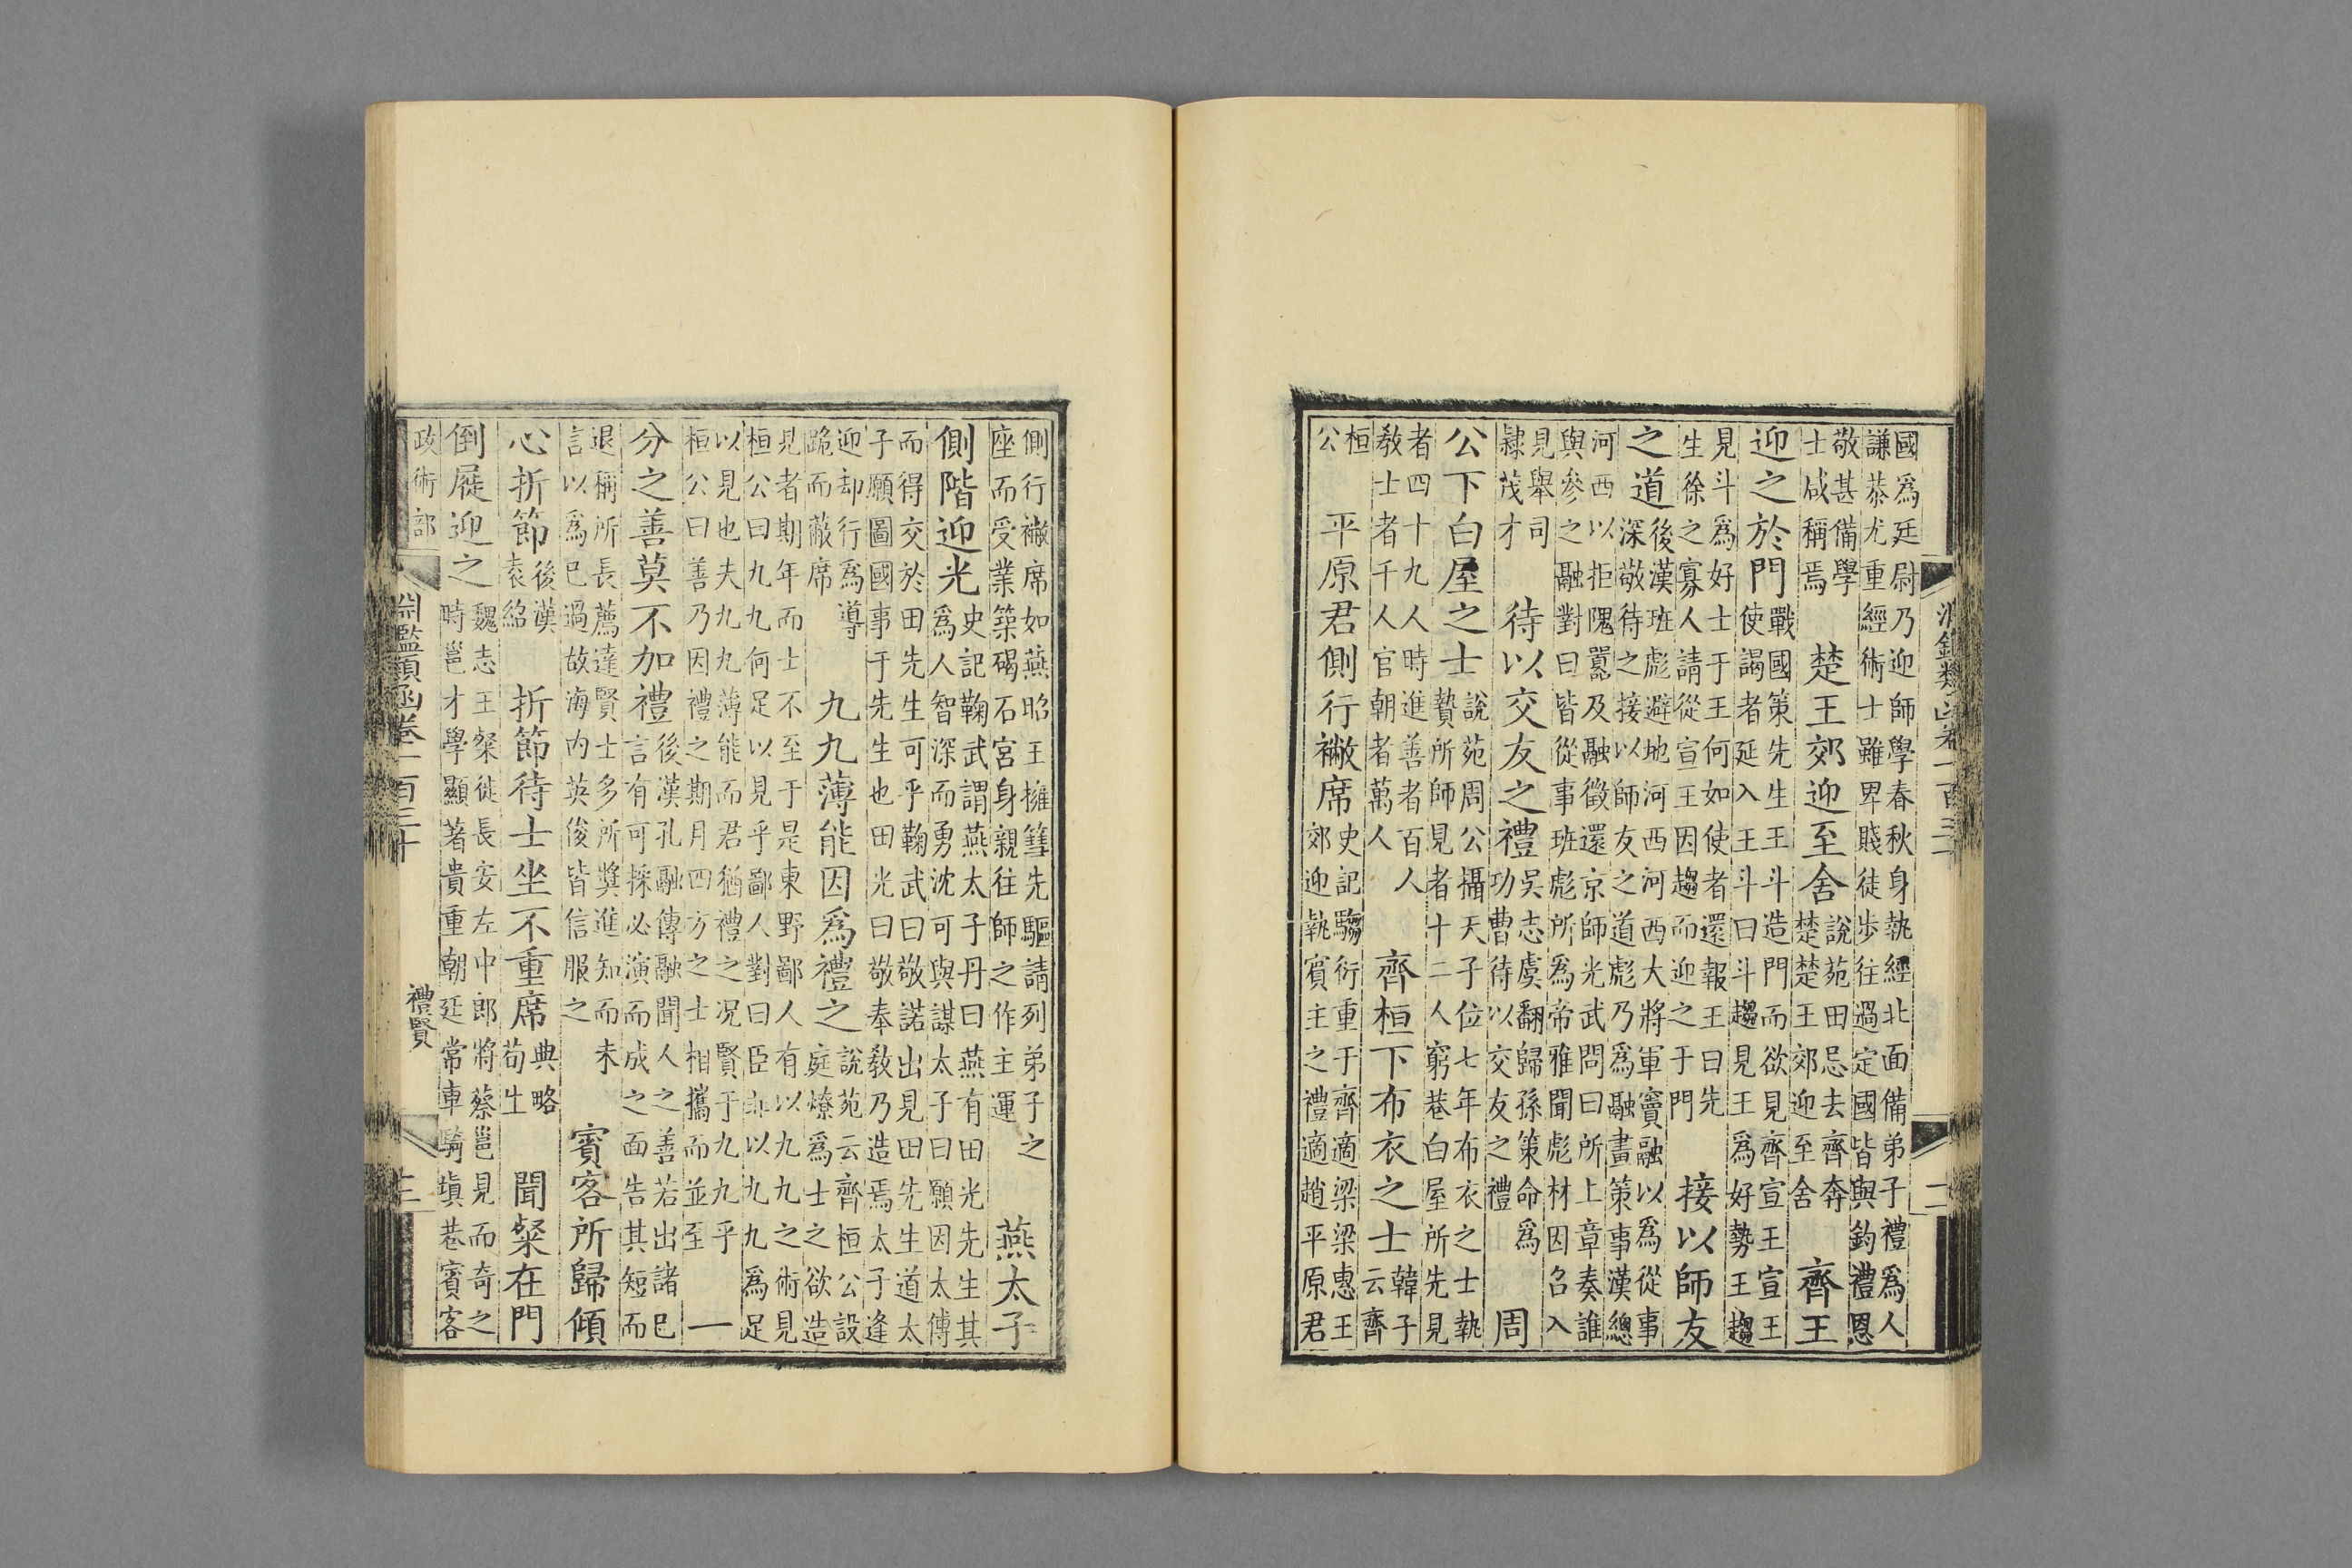 國爲廷尉乃迎師學春秋身執經北面備弟子禮爲人
謙恭尤重經術士雖卑賤徒步往過定國皆與鈞禮恩
敬甚備學
士咸稱焉
楚王郊迎至舍
說苑田忌去齊奔
楚楚王郊迎至舍
齊王
迎之於門
戰國策先生王斗造門而欲見齊宣王宣王
使謁者延入王斗曰斗趨見王爲好勢王趨
見斗爲好士于王何如使者還報王曰先
生徐之寡人請從宣王因趨而迎之于門
接以師友
之道
後漢班彪避地河西河西大將軍竇融以爲從事
深敬待之接以師友之道彪乃爲融畫策事漢總
河西以拒隗囂及融徵還京師光武問曰所上章奏誰
與參之融對曰皆從事班彪所爲帝雅聞彪材因召入
見舉司
隸茂才
待以交友之禮
吳志虞翻歸孫策命爲
功曹待以交友之禮
周
公下白屋之士
說苑周公攝天子位七年布衣之士執
贄所師見者十二人窮巷白屋所先見
者四十九人時進善者百人
教士者千人官朝者萬人
齊桓下布衣之士
韓子
云齊
桓
公
平原君側行襒席
史記騶衍重于齊適梁梁惠王
郊迎執賓主之禮適趙平原君
側行襒席如燕昭王擁篲先驅請列弟子之
座而受業築碣石宮身親往師之作主運
燕太子
側階迎光
史記鞠武謂燕太子丹曰燕有田光先生其
爲人智深而勇沈可與謀太子曰願因太傅
而得交於田先生可乎鞠武曰敬諾出見田先生道太
子願圖國事于先生也田光曰敬奉教乃造焉太子逢
迎却行爲導
跪而蔽席
九九薄能因爲禮之
說苑云齊桓公設
庭燎爲士之欲造
見者期年而士不至于是東野鄙人有以九九之術見
桓公曰九九何足以見乎鄙人對曰臣非以九九爲足
以見也夫九九薄能而君猶禮之況賢于九九乎
桓公曰善乃因禮之期月四方之士相攜而並至
一
分之善莫不加禮
後漢孔融傳融聞人之善若出諸已
言有可採必演而成之面告其短而
退稱所長薦達賢士多所奬進知而未
言以爲已過故海內英俊皆信服之
賓客所歸傾
心折節
後漢
袁紹
折節待士坐不重席
典略
荀生
聞粲在門
倒屣迎之
魏志王粲徙長安左中郎將蔡邕見而奇之
時邕才學顯著貴重朝廷常車騎塡巷賓客
政術部
淵鑑類函卷一百三十
禮賢
三